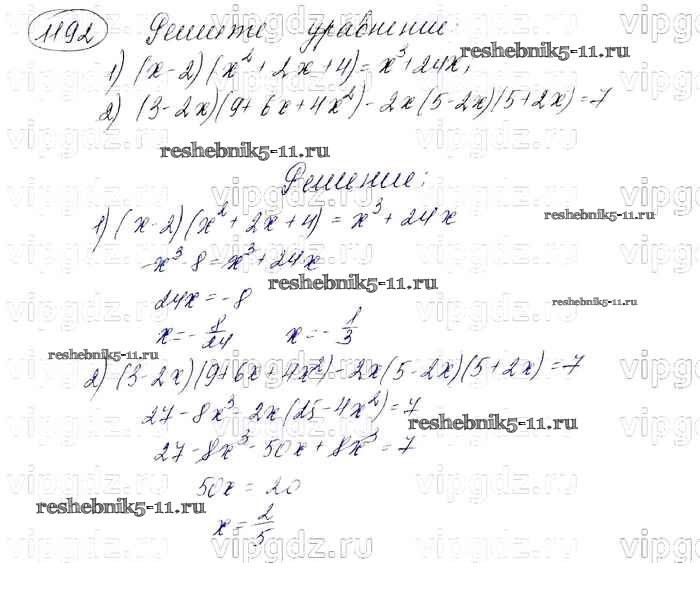 1192 Решите уравнение:
1) (x-2)(x²+2x+4)=x³+24x;
2) (3-2x)(9+6x+4x²)-2x(5-2x)(5+2x)=7
Решение:
1) (x-2)(x²+2x+4)=x³+24x
x³-8=x³+24x
24x=-8
x=-8/24 x=-1/3
2) (3-2x)(9+6x+4x²)-2x(5-2x)(5+2x)=7
27-8x³-2x(25-4x²)=7
27-8x³-50x+8x³=7
50x=20
x=2/5
reshebnik5-11.ru
reshebnik5-11.ru
reshebnik5-11.ru
reshebnik5-11.ru
reshebnik5-11.ru
reshebnik5-11.ru
reshebnik5-11.ru
reshebnik5-11.ru
vipgdz.ru